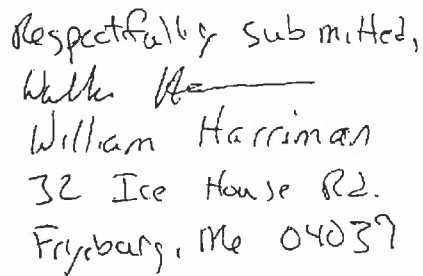 Respectfully submitted,
William Harriman
32 Ice House Rd.
Fryeburg, Me 04037